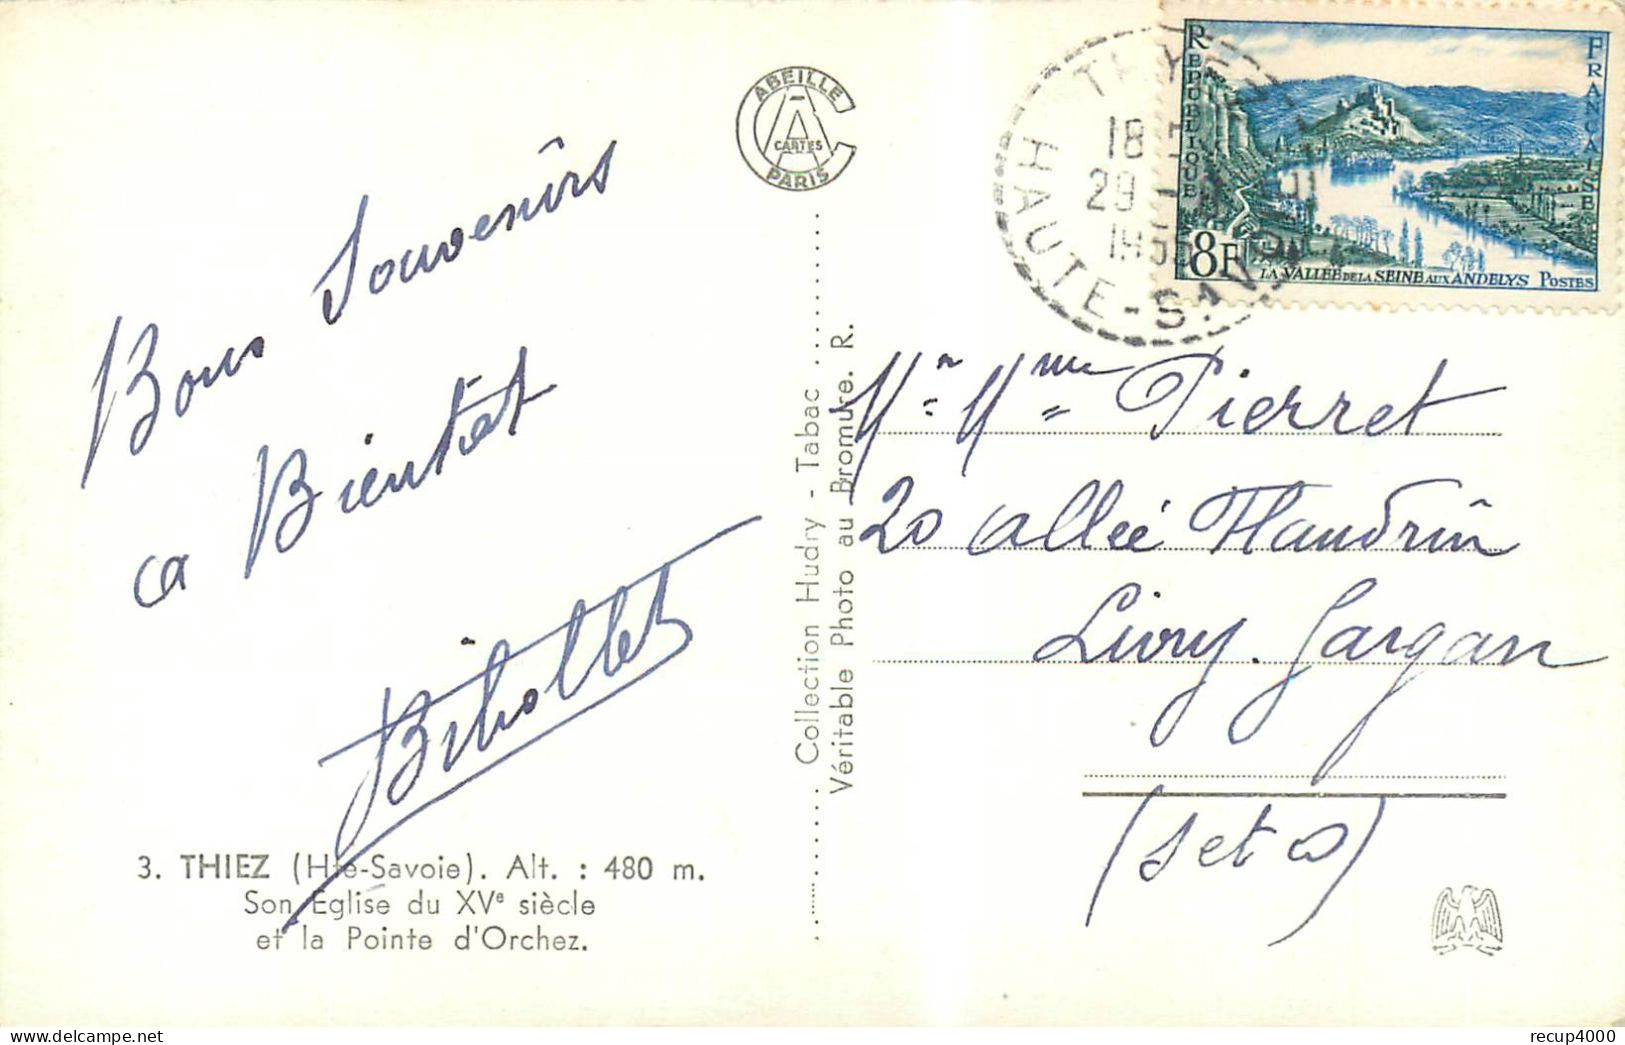 Bons Souvenirs
a Bientot
Bihollet
3. THIEZ (Hte-Savoie). Alt. : 480 m.
Son Eglise du XVe siècle
et la Pointe d'Orchez.
ABEILLE
CARTES
PARIS
Collection Hudry - Tabac
Véritable Photo au Bromure. R.
HAUTE-SAVOIE
18 H
29 -
RÉPUBLIQUE
FRANÇAISE
8F
LA VALLÉE DE LA SEINE AUX ANDELYS POSTES
Mr. Mme Pierret
20 allée Flandrin
Livry. Gargan
(S et O)
recup4000